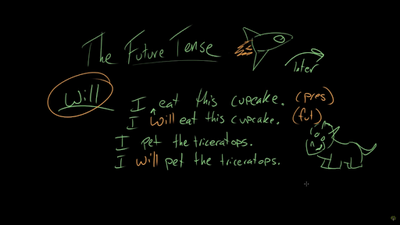 The Future Tense
later
will
I eat this cupcake. (pres)
I will eat this cupcake. (fut)
I pet the triceratops.
I will pet the triceratops.